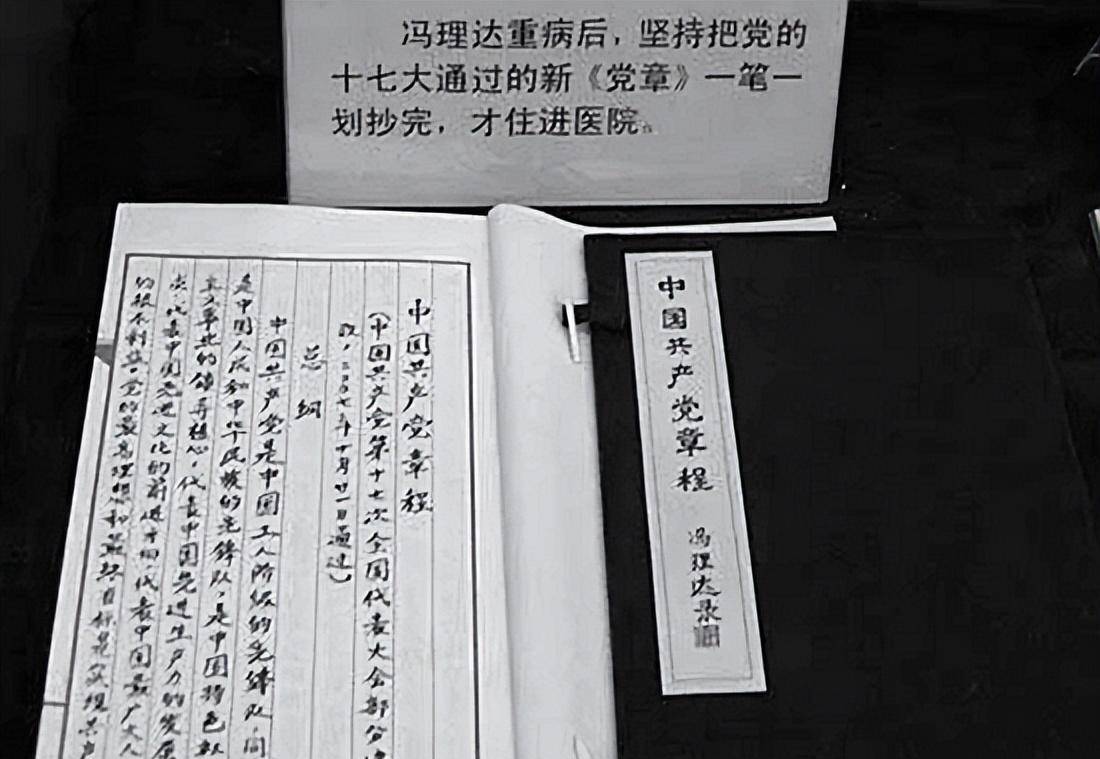 冯理达重病后，坚持把党的
十七大通过的新《党章》一笔一
划抄完，才住进医院。
中国共产党章程
（中国共产党第十七次全国代表大会部分修
改，二〇〇七年十月廿一日通过）
总纲
中国共产党是中国工人阶级的先锋队，同
是中国人民和中华民族的先锋队，是中国特色社
主义事业的领导核心，代表中国先进生产力的发展
代表中国先进文化的前进方向，代表中国最广大人
的根本利益。党的最高理想和最终目标是实现共产
中国共产党章程
冯理达录